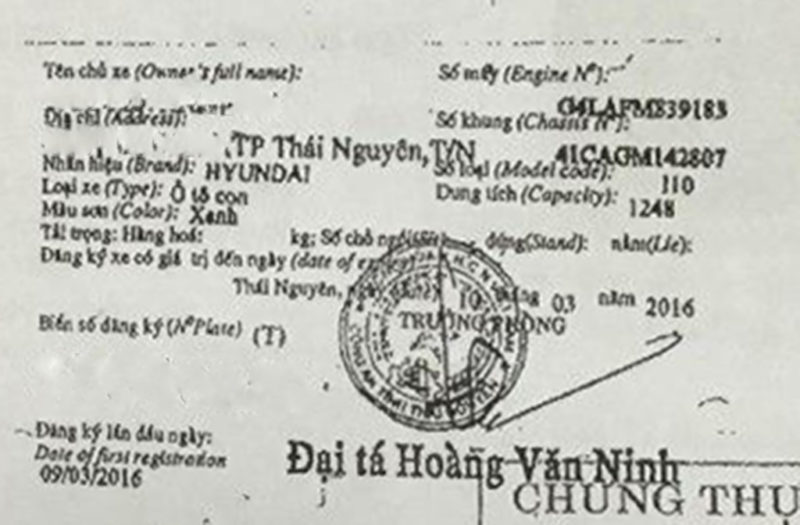 Tên chủ xe (Owner's full name):
Số máy (Engine Nº):
G4LAFM839183
Địa chỉ (Address):
Số khung (Chassis Nº):
,TP Thái Nguyên,T/N
41CAGM142807
Nhãn hiệu (Brand): HYUNDAI
Số loại (Model code): I10
Loại xe (Type): Ô tô con
Dung tích (Capacity): 1248
Màu sơn (Color): Xanh
Tải trọng: Hàng hoá: kg; Số chỗ ngồi(Sit): đứng(Stand): nằm(Lie):
Đăng ký xe có giá trị đến ngày (date of
Thái Nguyên, ngày 10 tháng 03 năm 2016
TRƯỞNG PHÒNG
Biển số đăng ký (NºPlate) (T)
Đăng ký lần đầu ngày:
Date of first registration
09/03/2016
Đại tá Hoàng Văn Ninh
CHỨNG THỰ